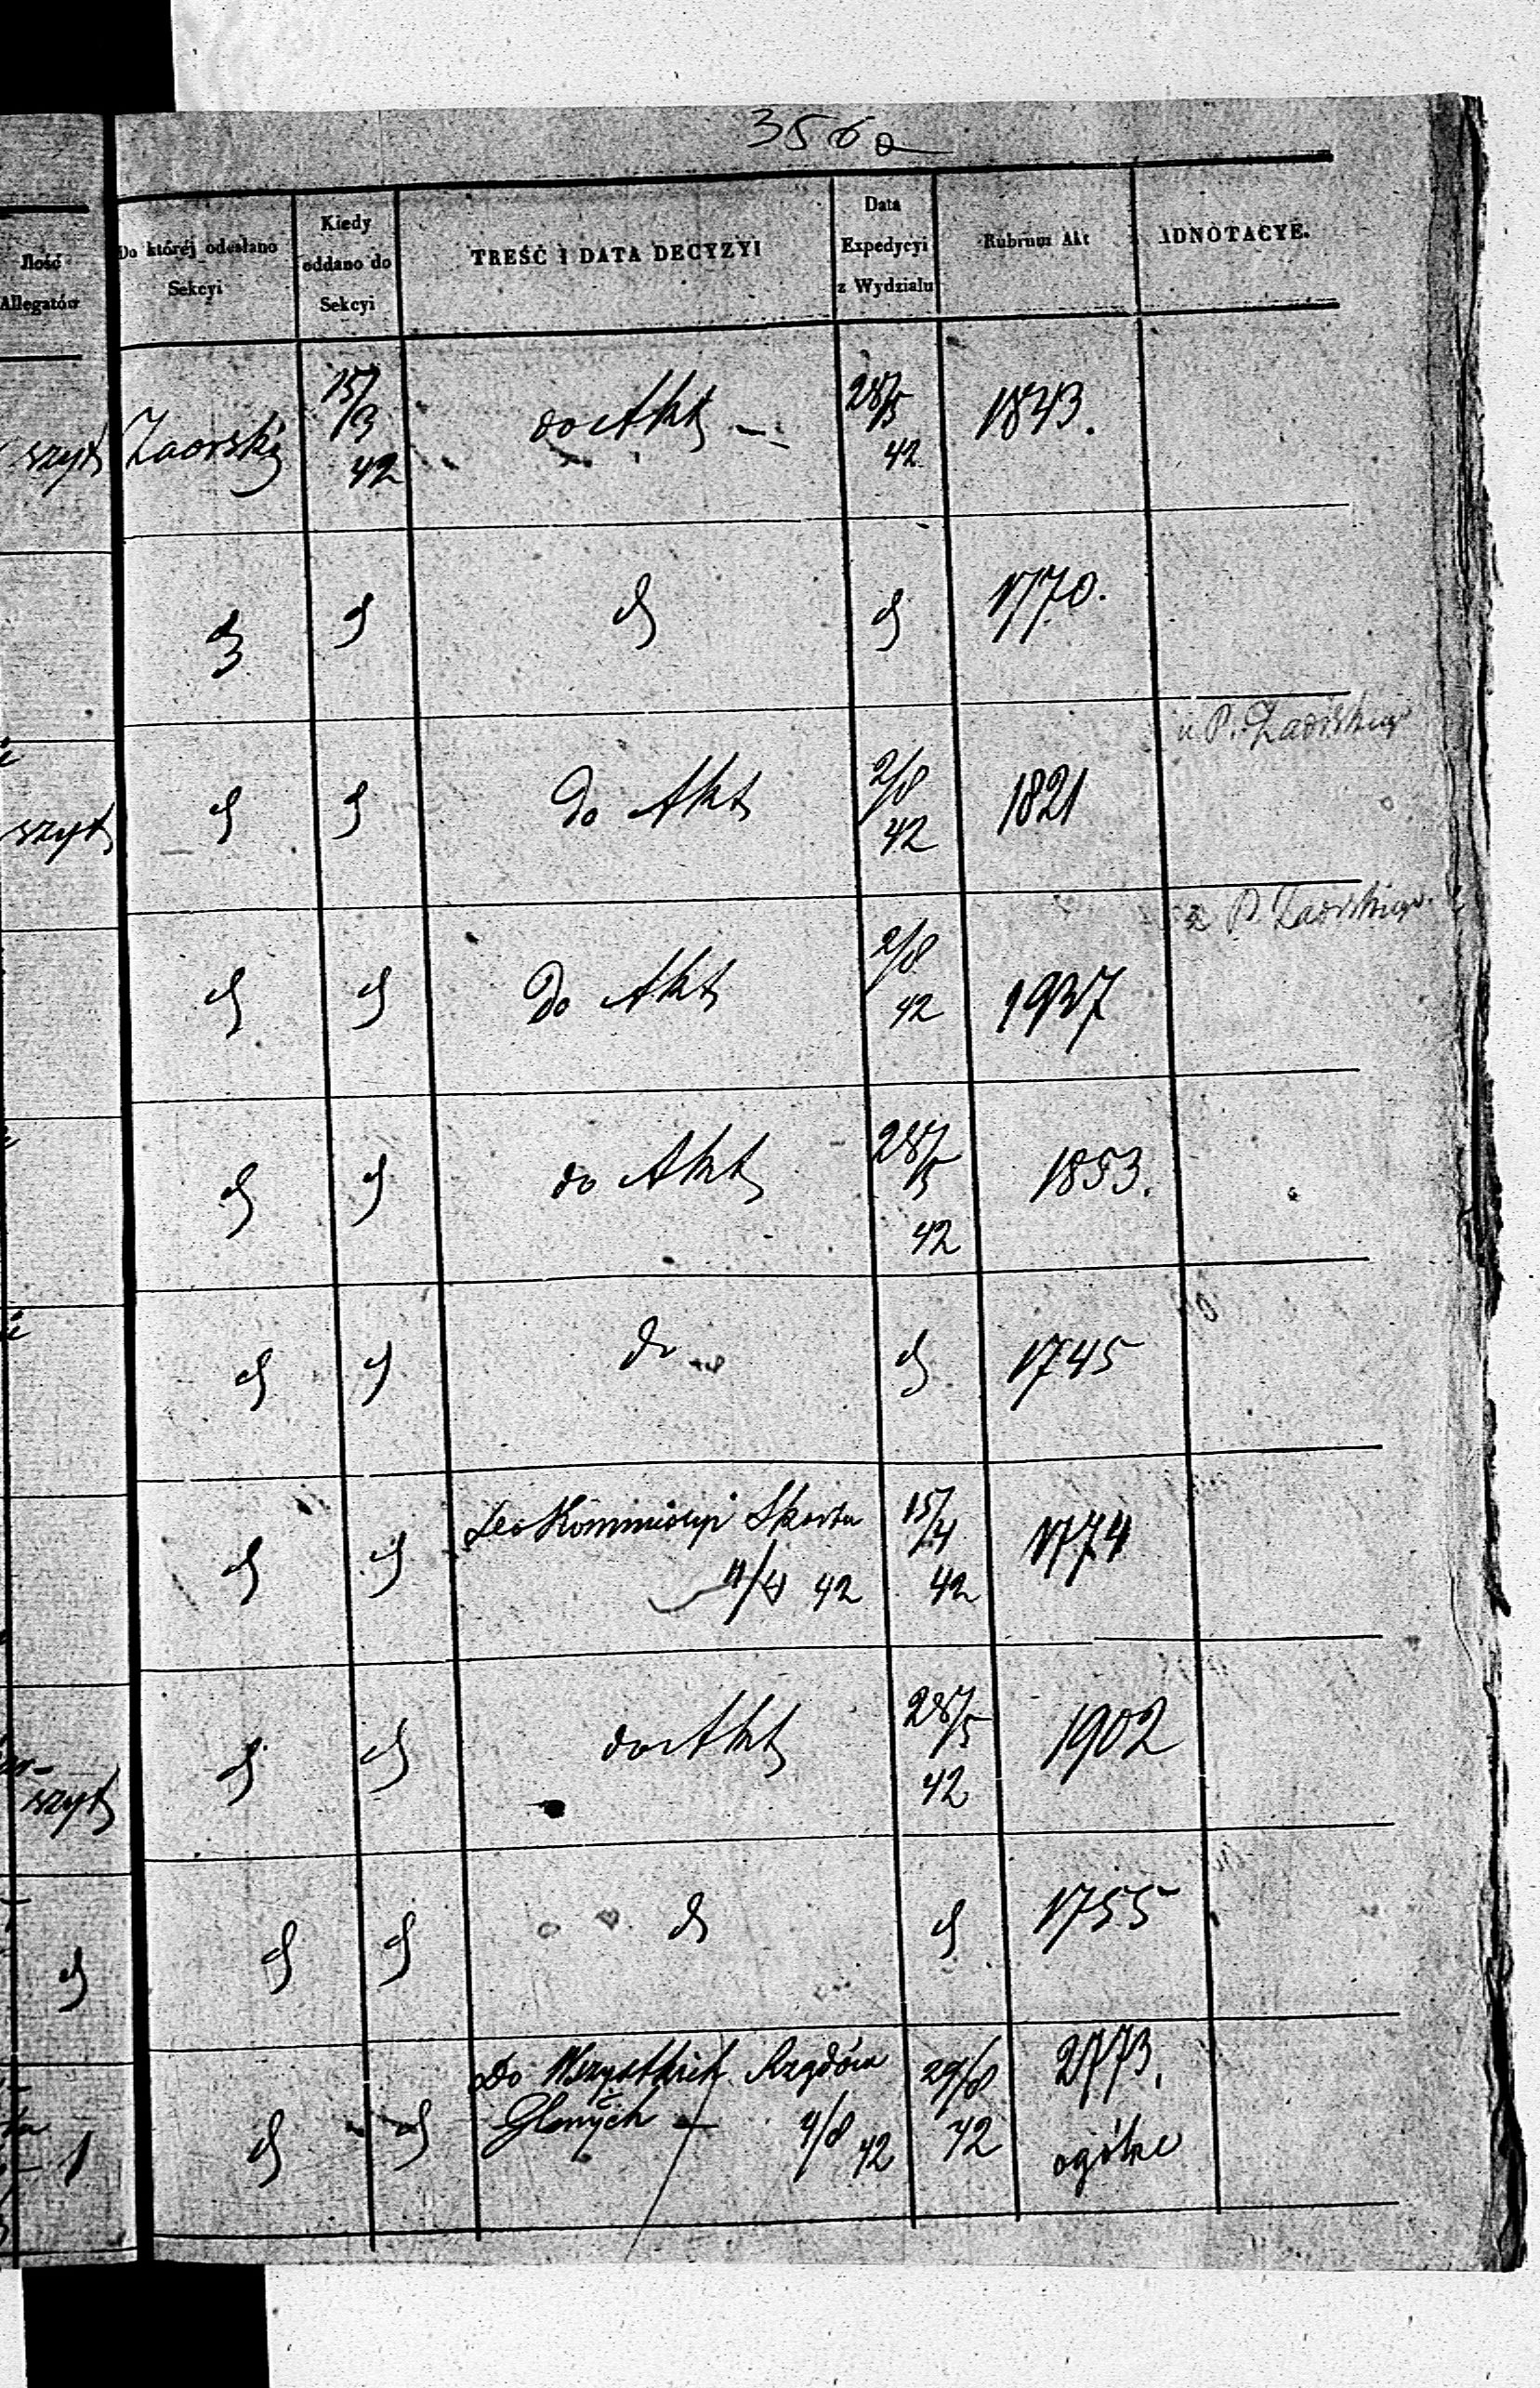 356a
Jlość
Allegatów
Do której odesłano
Sekcyi
Kiedy
oddano do
Sekcyi
TREŚĆ I DATA DECYZYI
Data
Expedycyi
z Wydziału
Rubrum Akt
ADNOTACYE.
szyt Zaorski 15/3 42 do Akt — 28/5 42 1843.
d d d d 1770.
u P. Zaorskiego
szyt d d Do Akt 2/8 42 1821
u P. Zaorskiego.
d d Do Akt 2/8 42 1937
d d do Akt 28/5 42 1853.
d d do d 1745
d d Do Kommissyi Skarbu 15/4 42 1774
11/4 42
szyt d d do Akt 28/5 42 1902
d d d d d 1755
1 d d Do Wszystkich Rządów 29/8 42 2773.
Glnych — 4/8 42 ogólne